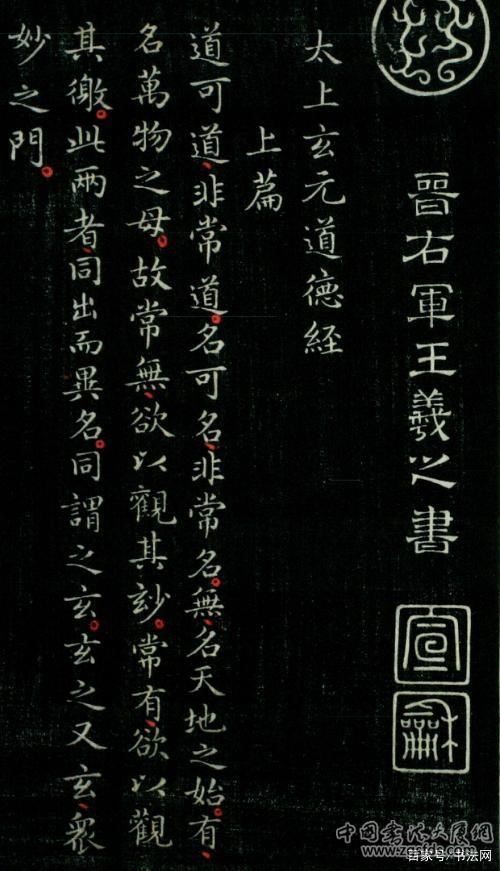 晉右軍王羲之書
宣龢
太上玄元道德經
上篇
道可道、非常道。名可名、非常名。無、名天地之始。有、
名萬物之母。故常無、欲以觀其玅。常有、欲以觀
其徼。此兩者、同出而異名。同謂之玄。玄之又玄、衆
妙之門。
百家号/书法网